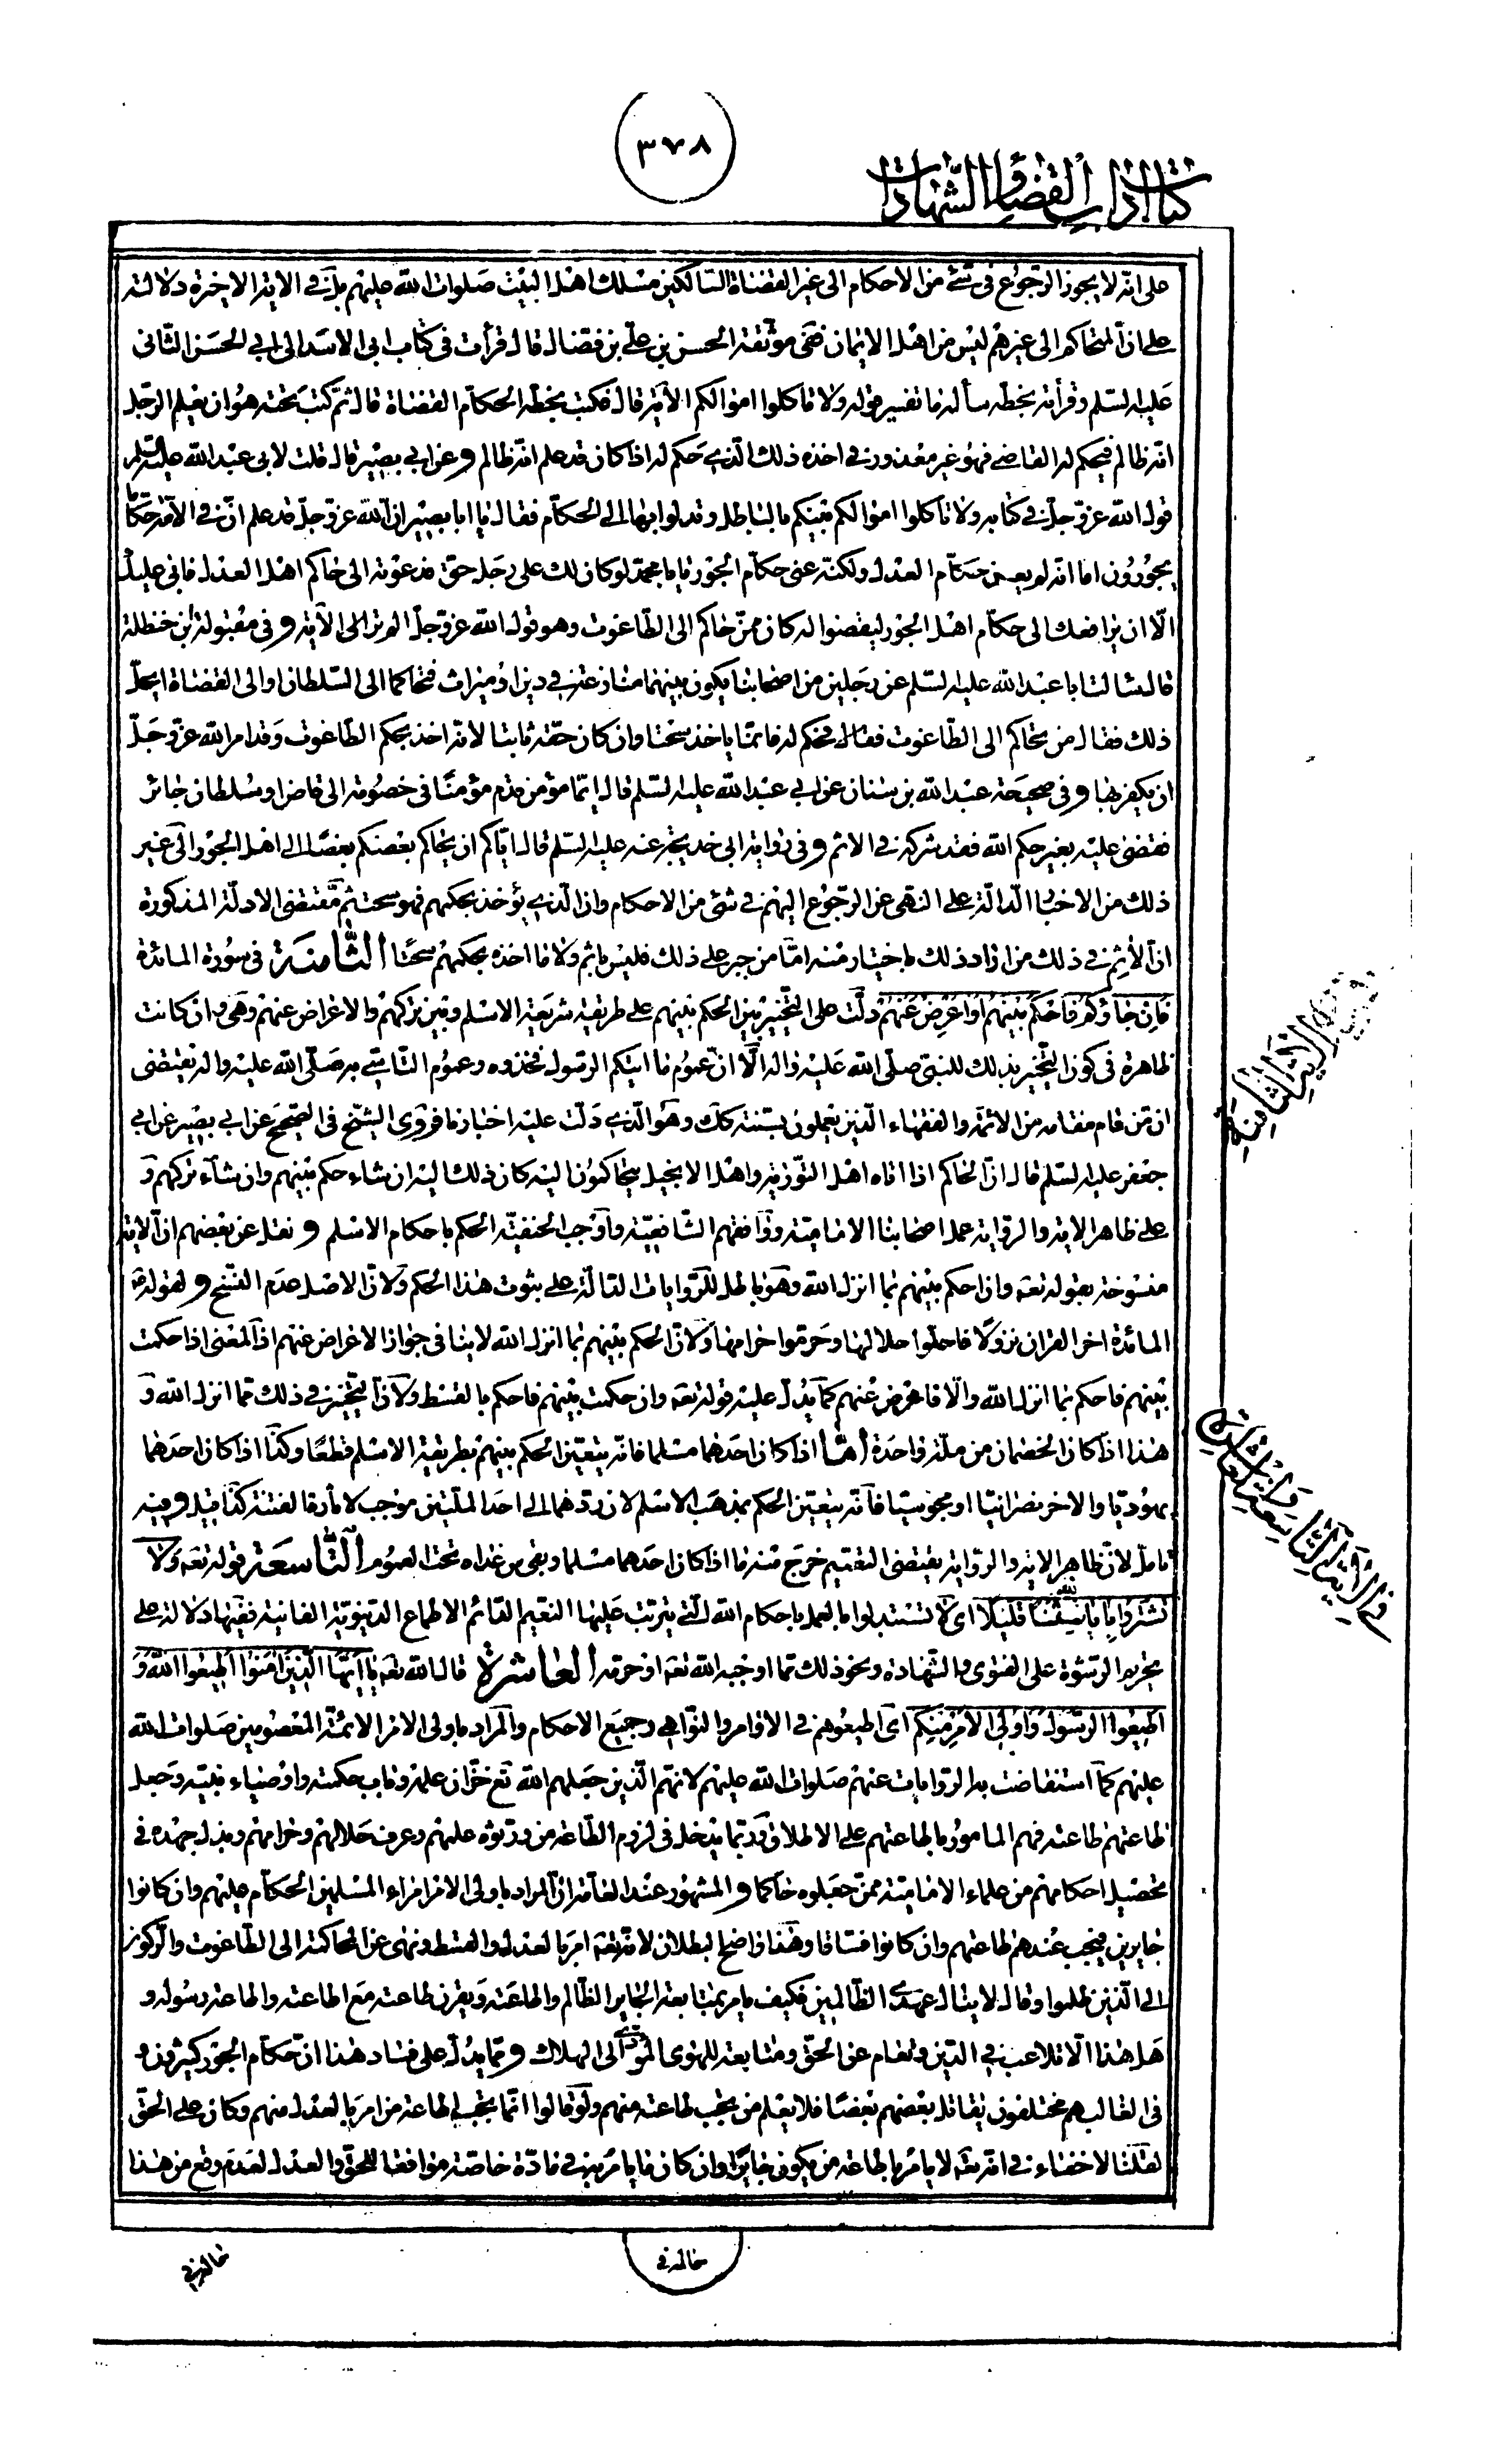 ٣٧٨
كتاب اداب القضاء والشهادات
على انّه لا يجوز الرّجوع فى شئ من الاحكام الى غير القضاة السّالكين مسلك اهل البيت صلوات الله عليهم بل فى الاية الاخيرة دلالة
على انّ المتحاكم الى غيرهم ليس من اهل الايمان ففى موثّقة الحسن بن علىّ بن فضّال قال قرأت فى كتاب ابى الاسد الى ابى الحسن الثّانى
عليه السّلم وقرأته بخطّه سأله ما تفسير قوله ولا تاكلوا اموالكم الاية قال فكتب بخطّه الحكّام القضاة قال ثمّ كتب تحته هو ان يعلم الرّجل
انّه ظالم فيحكم له القاضى فهو غير معذور فى اخذه ذلك الّذى حكم له اذا كان قد علم انّه ظالم و عن ابى بصير قال قلت لابى عبد الله عليه السّلم
قول الله عزّ وجلّ فى كتابه ولا تاكلوا اموالكم بينكم بالباطل وتدلوا بها الى الحكّام فقال يا ابا بصير انّ الله عزّ وجلّ قد علم انّ فى الامّة حكّاما
يجورون اما انّه لم يعن حكّام العدل ولكنّه عنى حكّام الجور يا با محمّد لو كان لك على رجل حق فدعوته الى حاكم اهل العدل فابى عليك
الّا ان يرافعك الى حكّام اهل الجور ليقضوا له كان ممّن حاكم الى الطّاغوت وهو قول الله عزّ وجلّ الم تر الى الآية و فى مقبولة ابن حنظلة
قال سالت ابا عبد الله عليه السّلم عن رجلين من اصحابنا يكون بينهما منازعة فى دين او ميراث فتحاكما الى السّلطان او الى القضاة ايحلّ
ذلك فقال من تحاكم الى الطّاغوت فحكم له فانّما ياخذ سحتا وان كان حقّه ثابتا لانّه اخذ بحكم الطّاغوت وقد امر الله عزّ وجلّ
ان يكفر بها و فى صحيحة عبد الله بن سنان عن ابى عبد الله عليه السّلم قال ايّما مؤمن قدم مؤمنًا فى خصومة الى قاض او سلطان جائر
فقضى عليه بغير حكم الله فقد شركه فى الاثم و فى رواية ابى خديجة عنه عليه السّلم قال ايّاكم ان يحاكم بعضكم بعضًا الى اهل الجور الى غير
ذلك من الاخبار الدّالّة على النهى عن الرّجوع اليهم فى شئ من الاحكام وان الّذى يؤخذ بحكمهم فهو سحت ثمّ مقتضى الادلّة المذكورة
انّ الاثم فى ذلك من اراد ذلك باختيار منه امّا من جبر على ذلك فليس باثم ولا ما اخذه بحكمهم سحتًا الثّامنة فى سورة المائدة
فان جاؤك فاحكم بينهم او اعرض عنهم دلّت على التّخيير بين الحكم بينهم على طريقة شريعة الاسلم وبين تركهم والاعراض عنهم وهى وان كانت
ظاهرة فى كون التّخيير بذلك للنبىّ صلّى الله عليه واله الّا انّ عموم ما اتيكم الرّسول فخذوه وعموم التّاسّى به صلّى الله عليه واله يقتضى
ان من قام مقامه من الائمّة والفقهاء الّذين يعملون بسنّته كك وهو الّذى دلّت عليه اخبارنا فروى الشّيخ فى الصّحيح عن ابى بصير عن ابى
جعفر عليه السّلم قال انّ الحاكم اذا اتاه اهل التّورية واهل الانجيل يتحاكمون اليه كان ذلك اليه ان شاء حكم بينهم وان شآء تركهم و
على ظاهر الاية والرّواية عمل اصحابنا الاماميّة ووافقهم الشّافعيّة واوجب الحنفيّة الحكم باحكام الاسلم و نقل عن بعضهم انّ الاية
منسوخة بقوله تعه وان احكم بينهم بما انزل الله وهو باطل للرّوايات الدّالّة على ثبوت هذا الحكم ولانّ الاصل عدم النّسخ و لقوله ص
المائدة اخر القران نزولًا فاحلّوا حلالها وحرّموا حرامها ولانّ الحكم بينهم بما انزل الله لا ينافى جواز الاعراض عنهم اذ المعنى اذا حكمت
بينهم فاحكم بما انزل الله والّا فاعرض عنهم كما يدلّ عليه قوله تعه وان حكمت بينهم فاحكم بالقسط ولانّ التّخيير فى ذلك ممّا انزل الله و
هذا اذا كان الخصمان من ملّة واحدة امّا اذا كان احدهما مسلما فانّه يتعيّن الحكم بينهم بطريقة الاسلم قطعًا وكذا اذا كان احدهما
يهوديّا والاخر نصرانيّا او مجوسيّا فانّه يتعيّن الحكم بمذهب الاسلم لان ردّهما الى احد الملّتين موجب لاثارة الفتنة كذا قيل و فيه
تامل لانّ ظاهر الاية والرّواية يقتضى التعميم خرج منه ما اذا كان احدهما مسلما وبقى من عداه تحت العموم التّاسعة قوله تعه ولا
تشتروا باياتى ثمنا قليلا اى لا تستبدلوا بالعمل باحكام الله الّتى يترتب عليها النّعيم الدّائم الاطماع الدّنيويّة الفانية ففيها دلالة على
تحريم الرّشوة على الفتوى والشّهادة ونحو ذلك ممّا اوجبه الله تعه او حرّمه العاشرة قال الله تعه يا ايّها الّذين امنوا اطيعوا الله و
اطيعوا الرّسول واولى الامر منكم اى اطيعوهم فى الاوامر والنّواهى وجميع الاحكام والمراد باولى الامر الائمّة المعصومين صلوات الله
عليهم كما استفاضت به الرّوايات عنهم صلوات الله عليهم لانّهم الّذين جعلهم الله تع خزّان علمه وباب حكمته واوصياء نبيّه وجعل
طاعتهم طاعته فهم المامور بطاعتهم على الاطلاق وربّما يدخل فى لزوم الطّاعة من ورّثوه علمهم وعرف حلالهم وحرامهم وبذل جهده فى
تحصيل احكامهم من علماء الاماميّة ممّن جعلوه حاكما و المشهور عند العامّة انّ المراد باولى الامر امراء المسلمين الحكّام عليهم وان كانوا
جايرين فيجب عندهم طاعتهم وان كانوا فسّاقا وهذا واضح البطلان لانّه تعه امر بالعدل والقسط ونهى عن المحاكمة الى الطّاغوت والرّكون
الى الّذين ظلموا وقال لا ينال عهدى الظّالمين فكيف يامر بمتابعة الجاير الظّالم واطاعته ويقرن طاعته مع اطاعته واطاعة رسوله و
هل هذا الّا تلاعب فى الدّين وتعام عن الحقّ ومتابعة للهوى المؤدّى الى الهلاك و ممّا يدلّ على فساد هذا انّ حكّام الجور كثيرون و
فى الغالب هم مختلفون يقاتل بعضهم بعضًا فلا يعلم من يجب طاعته منهم ولو قالوا انّما تجب طاعة من امر بالعدل منهم وكان على الحقّ
لقلنا لا خفاء فى انّه تعه لا يامر باطاعة من يكون جايرًا وان كان ما يامر به فى مادّة خاصّة موافقا للحقّ والعدل لعدم وقع من هذا
الاية الثامنة
فى الاية التاسعة والاية العاشرة
حاله فى
حاله فى